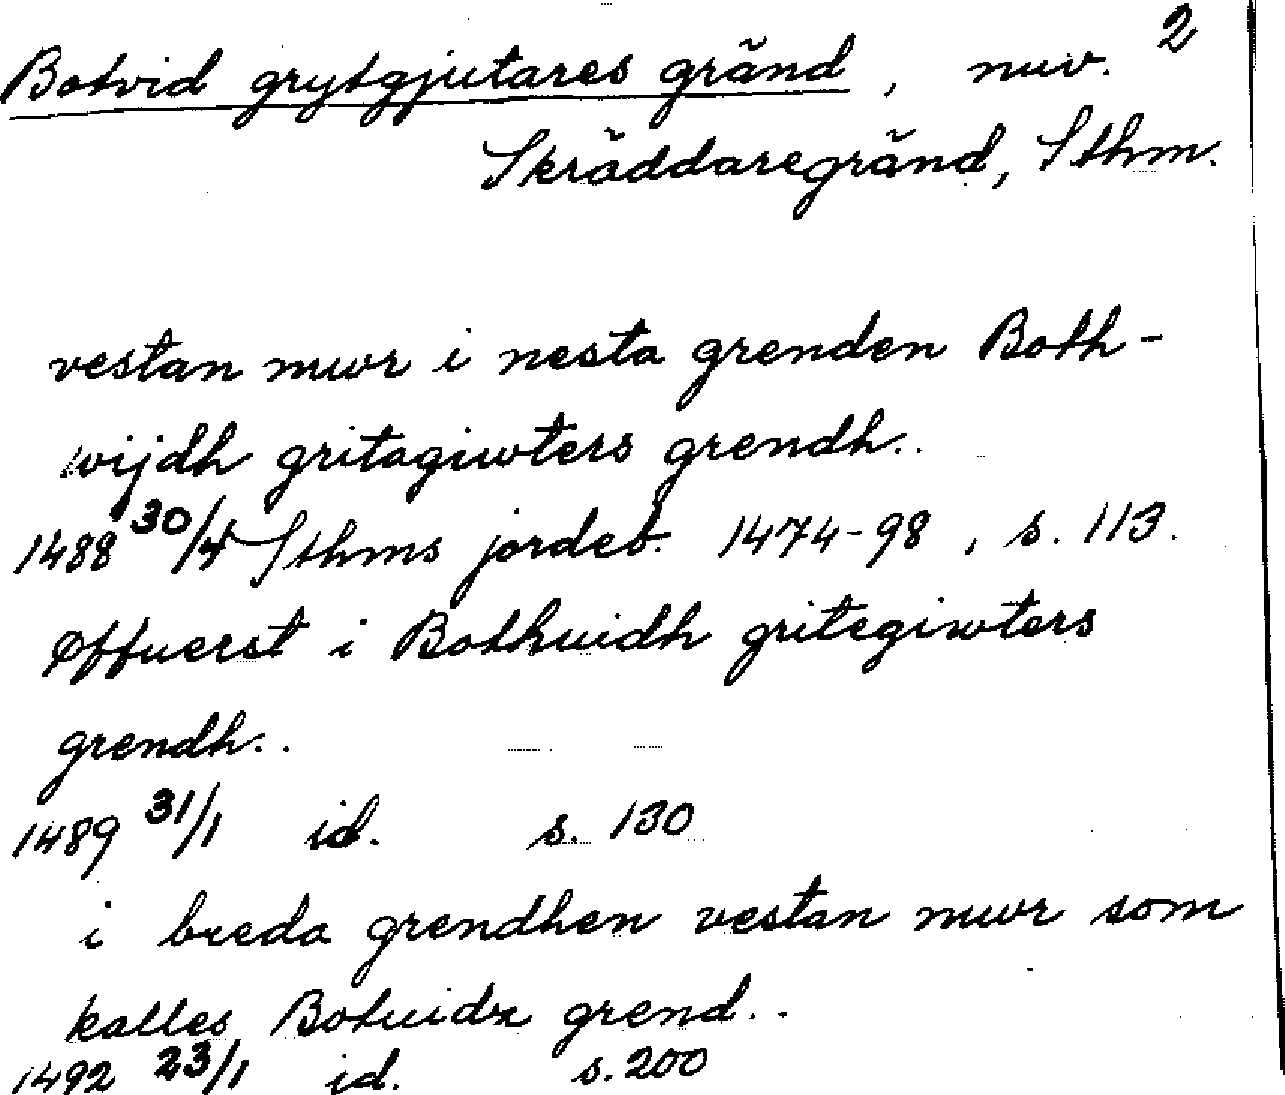 2
Botvid grytgjutares gränd, nuv.
Skräddaregränd, Sthm.
vestan mwr i nesta grenden Both-
wijdh gritagiwters grendh..
1488 30/4 Sthms jordeb. 1474-98, s. 113.
Øffuerst i Bothuidh gritegiwters
grendh..
1489 31/1 id. s. 130
i breda grendhen vestan mwr som
kalles Botuidx grend..
1492 23/1 id. s. 200